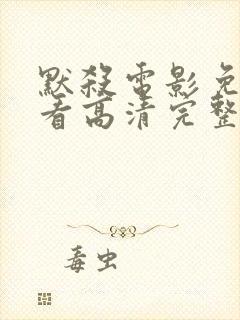 默殺電影免
看高清完整
毒虫